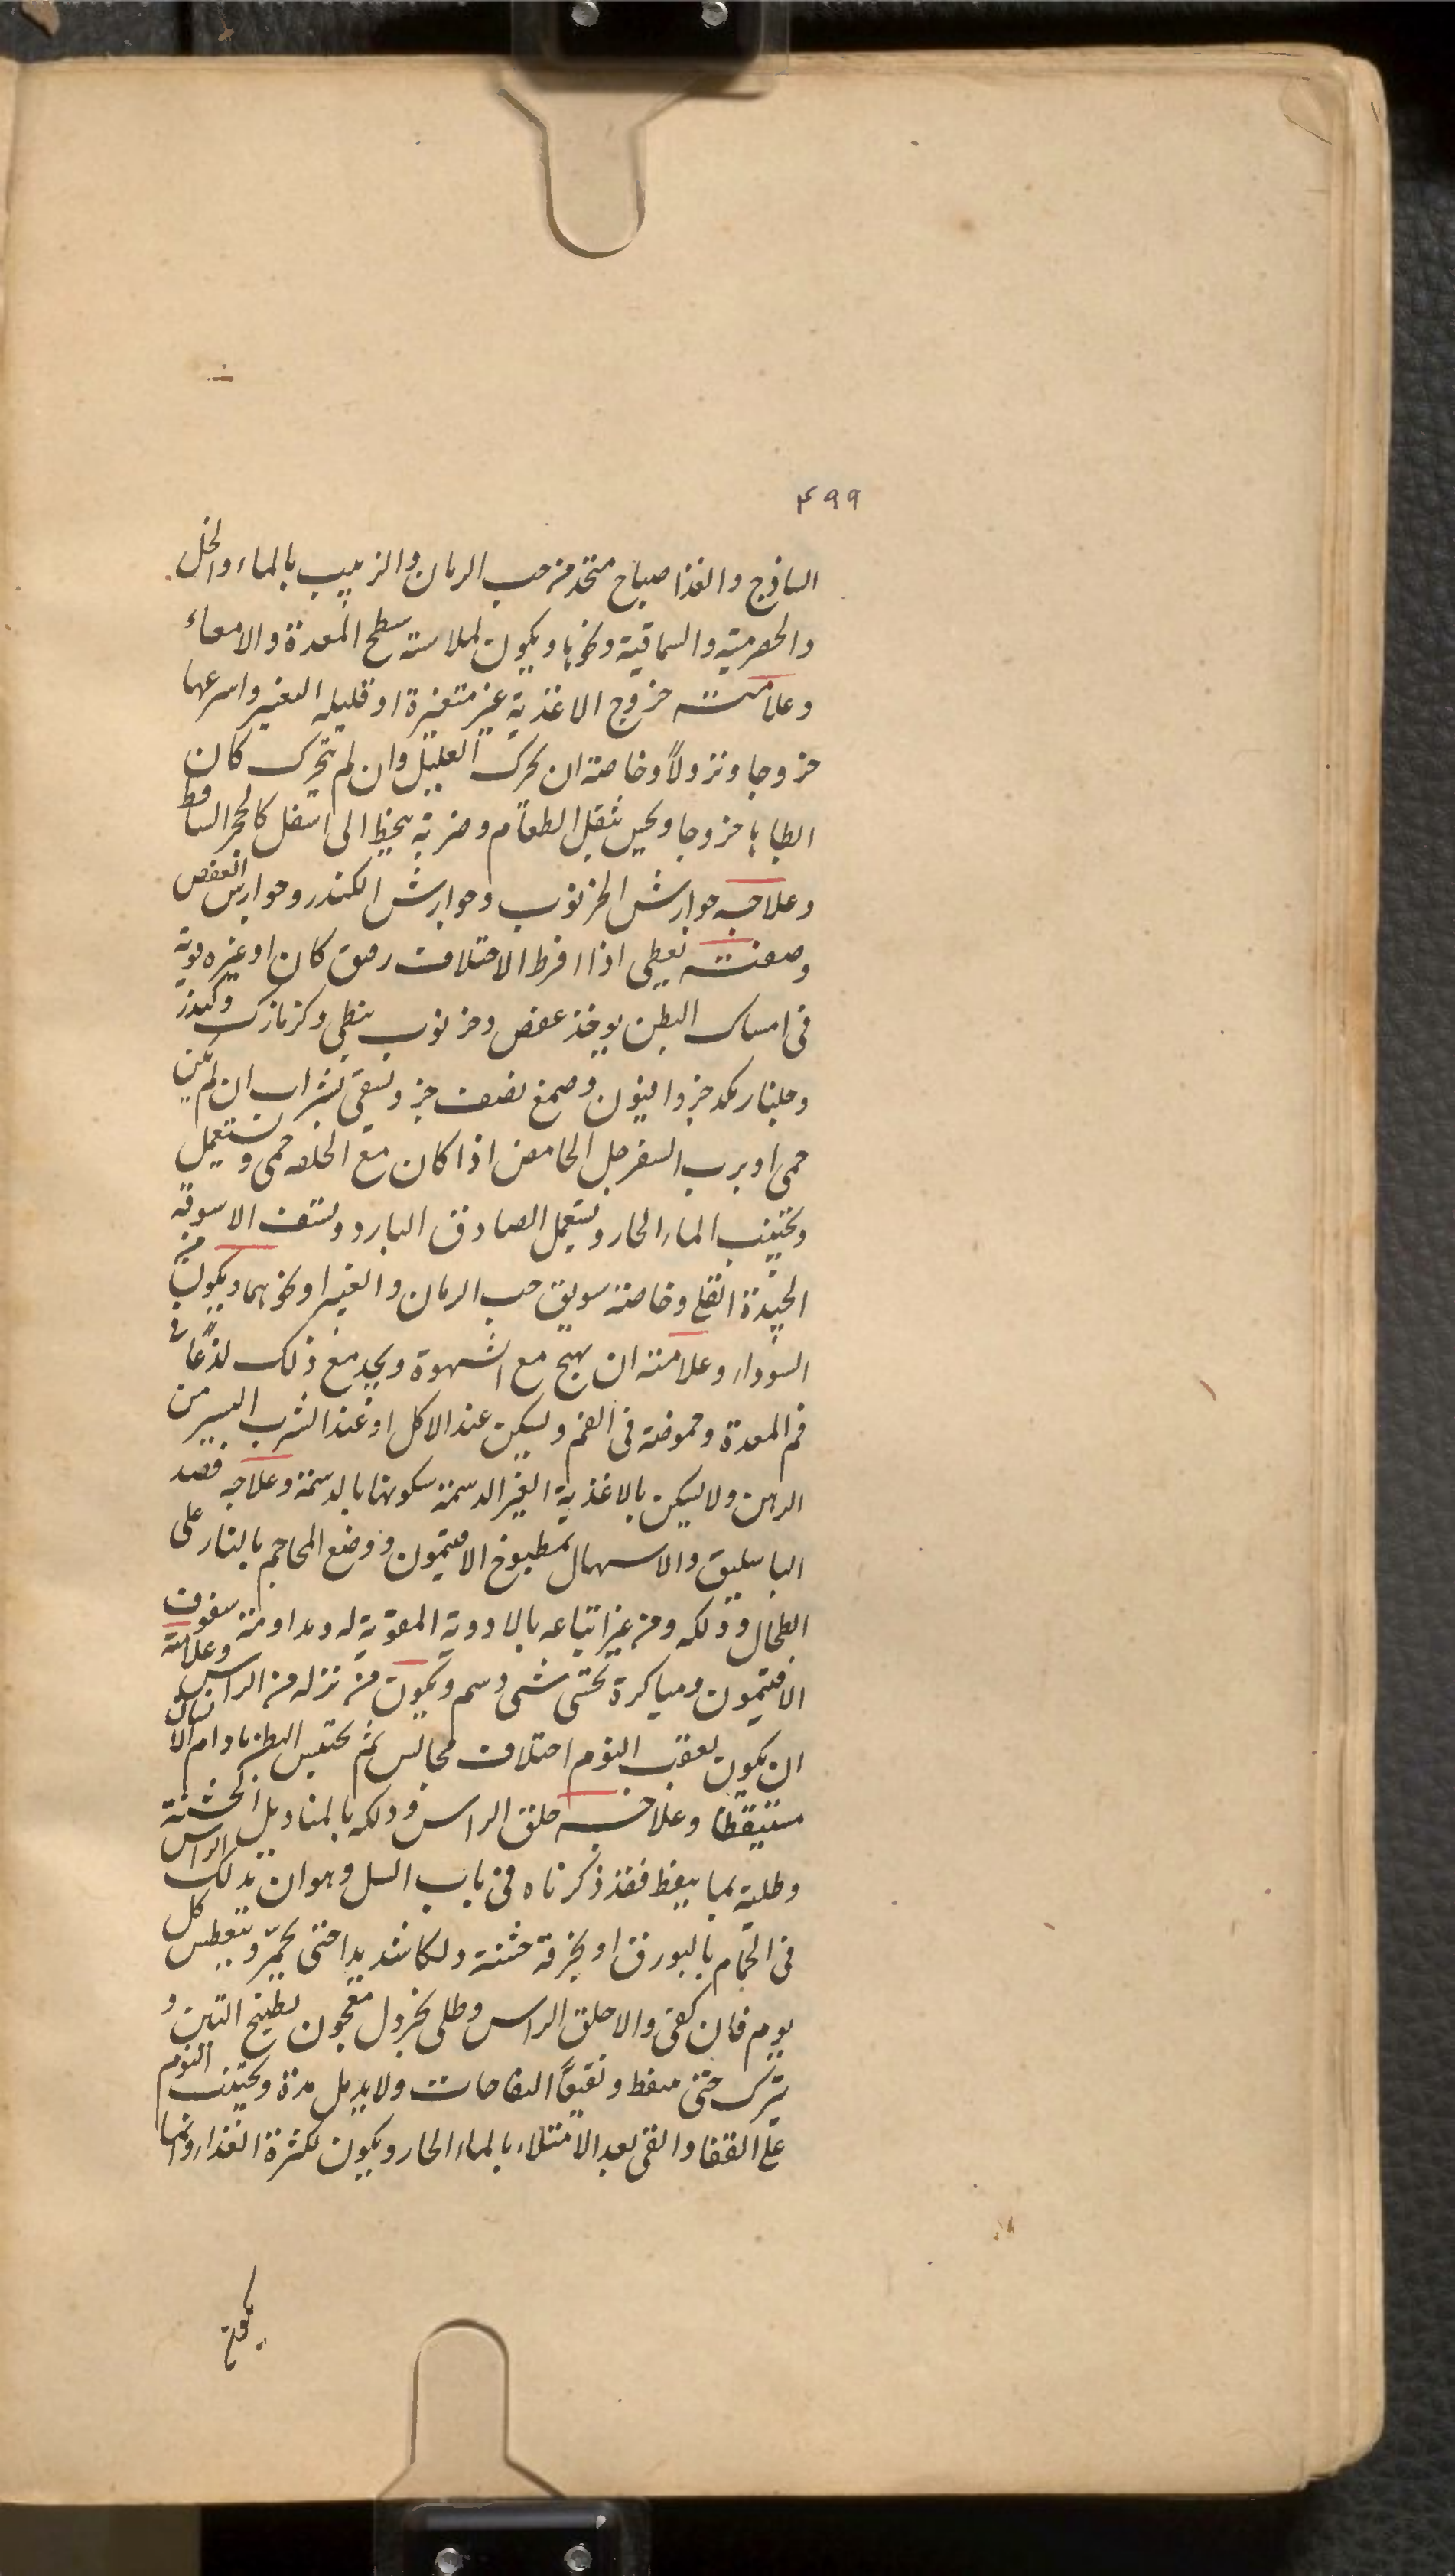 ۴۹۹
الساذج والغذا صباح متخذ من حب الرمان والزبيب بالماء والخل
والحصرمية والسماقية ونحوها ويكون لملاسته سطح المعدة والامعاء
وعلامته خروج الاغذية غير متغيرة او قليله التغير واسرعها
خروجا ونزولاً وخاصة ان تحرك العليل وان لم يتحرك كان
ابطاها خروجا ويحس بثقل الطعام وضربة ينحط الى اسفل كالحجر الساقط
وعلاجه جوارش الخرنوب وجوارش الكندر وجوارش العفص
وصفته يعطى اذا افرط الاختلاف رقق كان او غيره قوية
فى امساك البطن يوخذ عفص وخرنوب نبطى وكزمازك وكندر
وجلنار بكد جزو افيون وصمغ نصف جزو يسقى بشراب ان لم يكن
حمى او برب السفرجل الحامض اذا كان مع الخلفه حمى ويستعمل
ويجتنب الماء الحار ويستعمل الصادق البارد ويستف الاسوقة
الجيدة القلى وخاصة سويق حب الرمان والغبيرا ونحوهما ويكون من
السوداء وعلامته ان يهيج مع الشهوة ويجد مع ذلك لذعاً فى
فم المعدة وحموضة فى الفم ويسكن عند الاكل او عند الشرب اليسير من
الدهن ولا يسكن بالاغذية الغير الدسمة سكونها بالدسمة وعلاجه فصد
الباسليق والاسهال بمطبوخ الافتيمون ووضع المحاجم بالنار على
الطحال ودلكه ومن غير اتباعه بالادوية المقوية له ومداومته سفوف
الافتيمون ومباكرة تحسى شى دسم ويكون من نزله من الراس وعلامته
ان يكون بعقب النوم اختلاف مجالس ثم يحتبس البطن ما دام الانسان
مستيقظا وعلاجه حلق الراس ودلكه بالمناديل الخشنة
وطليه بما ينفط فقد ذكرناه فى باب السل وهو ان تدلك الراس
فى الحمام بالبورق او بخرقة خشنة دلكا شديدا حتى يحمر ويتعطس كل
يوم فان كفى والا حلق الراس وطلى بخردل معجون بطبيخ التين و
يترك حتى ينفط وتفقأ النفاحات ولا يدمل مدة ويجتنب النوم
على القفا والقى بعد الامتلاء بالماء الحار ويكون لكثرة الغذاء وانها